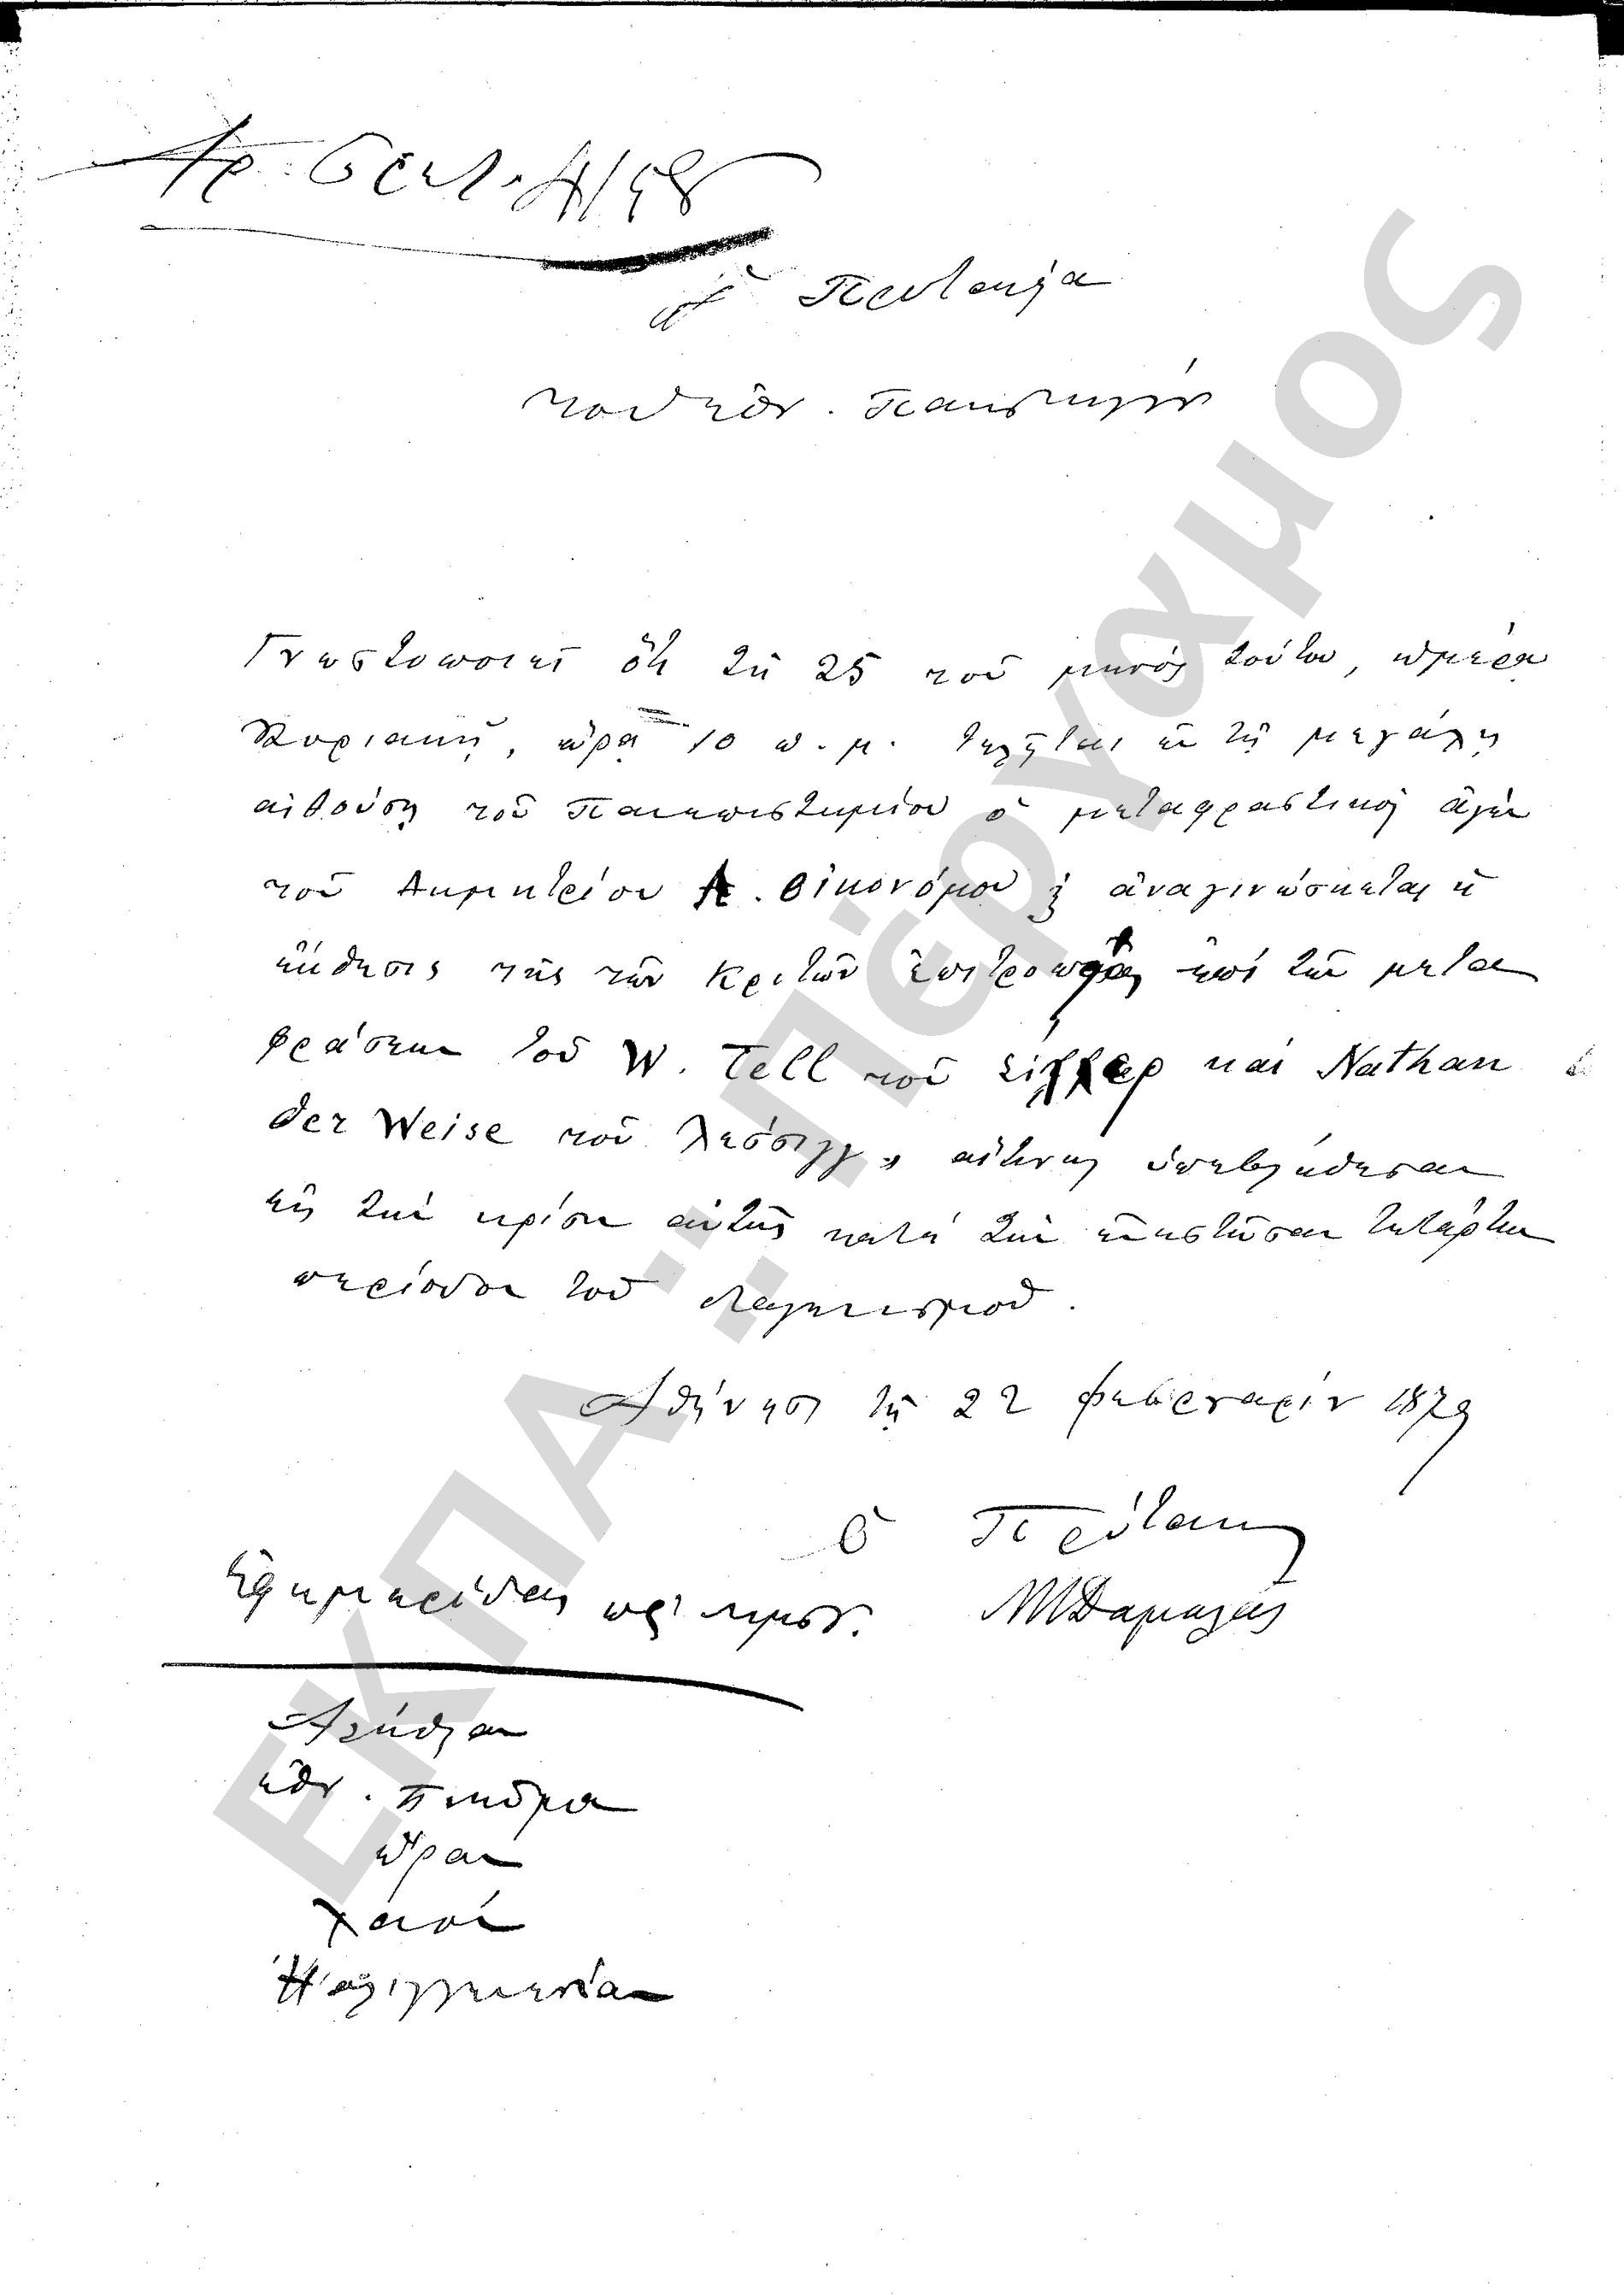 ἡ Πρυτανεία
τοῦ ἐθν. Πανεπιστημίου
Γνωστοποιεῖ ὅτι τῇ 25 τοῦ μηνὸς τούτου, ἡμέρᾳ
Κυριακῇ, ὥρᾳ 10 π.μ. τελεῖται ἐν τῇ μεγάλῃ
αἰθούσῃ τοῦ Πανεπιστημίου ὁ μεταφραστικὸς ἀγὼν
τοῦ Δημητρίου Οἰκονόμου καὶ ἀναγινώσκεται ἡ
ἔκθεσις τῆς τῶν κριτῶν ἐπιτροπῆς ἐπὶ τῶν μετα
φράσεων τοῦ W. Tell τοῦ Σίλλερ καὶ Nathan
der Weise τοῦ Λέσσιγγ, αἵτινες ὑπεβλήθησαν
εἰς τὴν κρίσιν αὐτῆς κατὰ τὴν ἐνεστῶσαν τετάρτην
περίοδον τοῦ διαγωνισμοῦ.
Ἀθήνησι τῇ 22 Φεβρουαρίου 1879
Ὁ Πρύτανις
Ἐφημερίδας
Μ Δαμαλᾶς
Ἀλήθειαν
ἐθν. Πνεῦμα
Ὥραν
Παλιγγενεσίαν